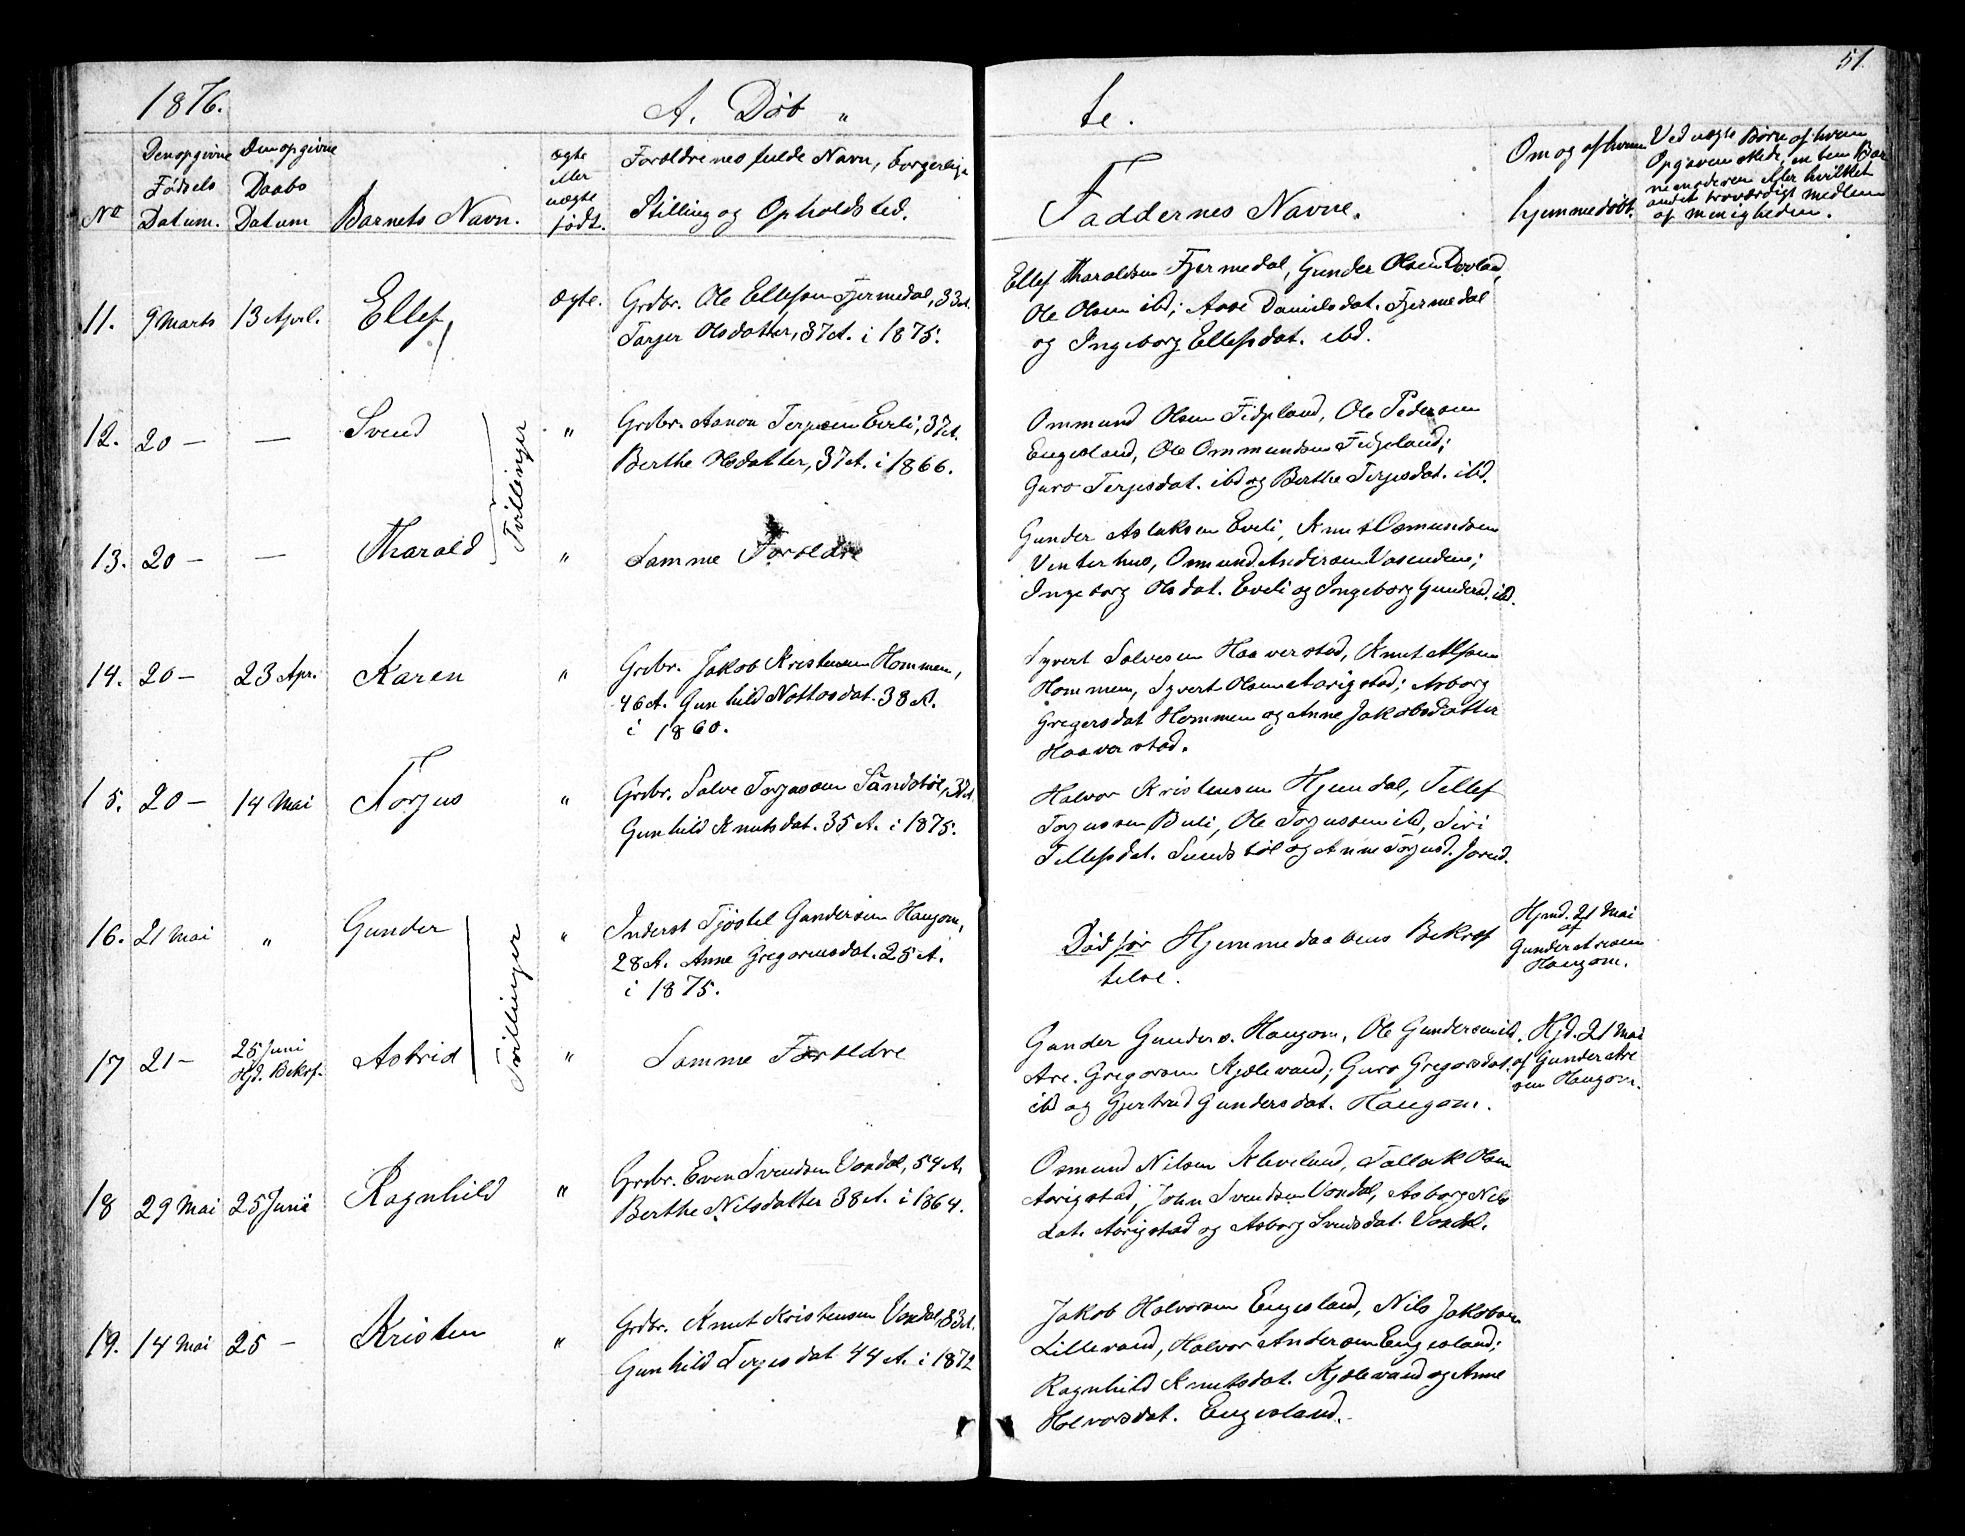 51.
1876.
A. Döb „
te.
No
Den opgivne
Födsels
Datum.
Den opgivne
Daabs
Datum
Barnets Navn.
ægte
eller
uægte
födt.
Forældrenes fulde Navn, borgerlige
Stilling og Opholdsted.
Faddernes Navne.
Om og af hvem
hjemmedöbt.
Ved uægte Börn af hvem
andet troværdigt medlem
af menigheden.
11. 9 Marts 13 April. Ellef ægte.
Grdbr. Ole Ellefsen Fjermedal, 33 A.
Tarjer Olsdatter, 37 A. i 1875.
Ellef Tharaldsen Fjermedal, Gunder Olsen
Ole Olsen ibd; Aase Danielsdat. Fjermedal
og Ingeborg Ellefsdat. ibd.
12. 20 — — Svend „
Tvillinger
Grdbr. Aanon Terjesen Eveli, 37 A.
Berthe Olsdatter, 37 A. i 1866.
Ommund Olsen Fidjeland, Ole Pedersen
Engesland, Ole Ommundsen Fidjeland;
Guro Terjesdat. ibd og Berthe Terjesdat. ibd.
13. 20 — — Tharald „
Samme Forældre
Gunder Aslaksen Eveli, Knut Osmundsen
Vinterhus, Osmund Andersen Vasendene;
Ingeborg Olsdat. Eveli og Ingeborg Gundersd. ibd.
14. 20 — 23 Apri Karen „
Grdbr. Jakob Kristensen Hommen,
46 A. Gunhild Nottosdat. 38 A.
i 1860.
Syvert Salvesen Haaverstad, Knut
Hommen, Syvert Olsen Aarigstad; Asborg
Gregersdat Hommen og Anne Jakobsdatter
Haaverstad.
15. 20 — 14 Mai Torjus „
Grdbr. Salve Torjussen Sandstöl,
Gunhild Knutsdat. 35 A. i 1875.
Halvor Kristensen Hjemdal, Tellef
Torjussen Buli, Ole Torjussen ibd, Siri
Tellefsdat. Sundstöl og Anne Torjusd.
16. 21 Mai „ Gunder „
Tvillinger
Inderst Tjöstel Gundersen Haugom,
28 A. Anne Gregoriusdat. 25 A.
i 1875.
Död för Hjemmedaabens Bekræf
telse.
Hjmd. 21 Mai
af
Gunder Aresen
Haugom.
17 21 — 25 Juni
Hjd. Bekræf. Astrid „
Samme Forældre
Gunder Gunders. Haugom, Ole Gundersen ibd.
Are. Gregorsen Kjölevand; Guro Gregorsdat.
ibd og Gjertrud Gundersdat. Haugom.
Hjd. 21 Mai
af Gunder Are
sen Haugom.
18 29 Mai 25 Juni Ragnhild „
Grdbr. Even Svendsen Vondal, 54 A.
Berthe Nilsdatter 38 A. i 1864.
Osmund Nilsen Kleveland, Tallak Olsen
Aarigstad, John Svendsen Vondal, Asborg Nils
dat. Aarigstad og Asborg Svensdat. Vondal.
19. 14 Mai 25 — Kristen „
Grdbr. Knut Kristensen Vondal, 33 A.
Gunhild Terjesdat 44 A. i 1872
Jakob Halvorsen Engesland, Nils Jakobsen
Lillevand, Halvor Andersen Engesland;
Ragnhild Knutsdat. Kjölevand og Anne
Halvorsdat. Engesland.